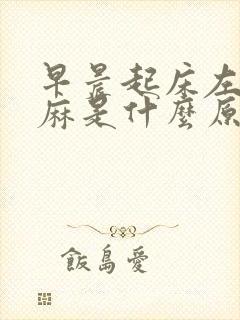 早晨起床左
麻是什麼原
飯島愛